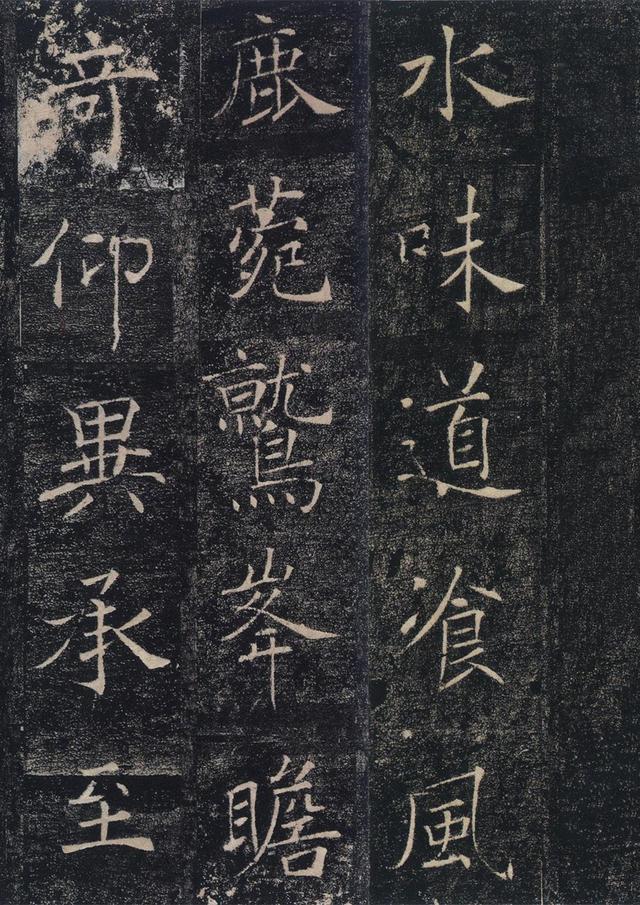 水味道飡風
鹿菀鷲峯瞻
竒仰異承至